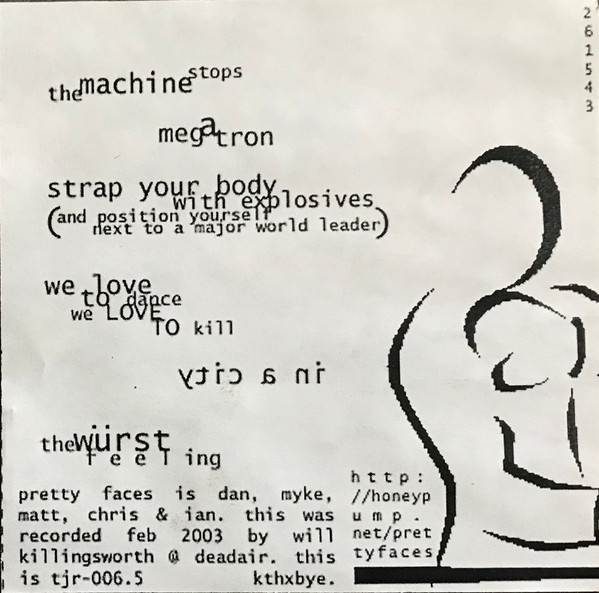 the machine stops
megatron
strap your body
with explosives
(and position yourself
next to a major world leader)
we love
to dance
we LOVE
TO kill
in a city
the würst
feeling
pretty faces is dan, myke,
matt, chris & ian. this was
recorded feb 2003 by will
killingsworth @ deadair. this
is tjr-006.5 kthxbye.
http:
//honeyp
ump.
net/pret
tyfaces
2
6
1
5
4
3